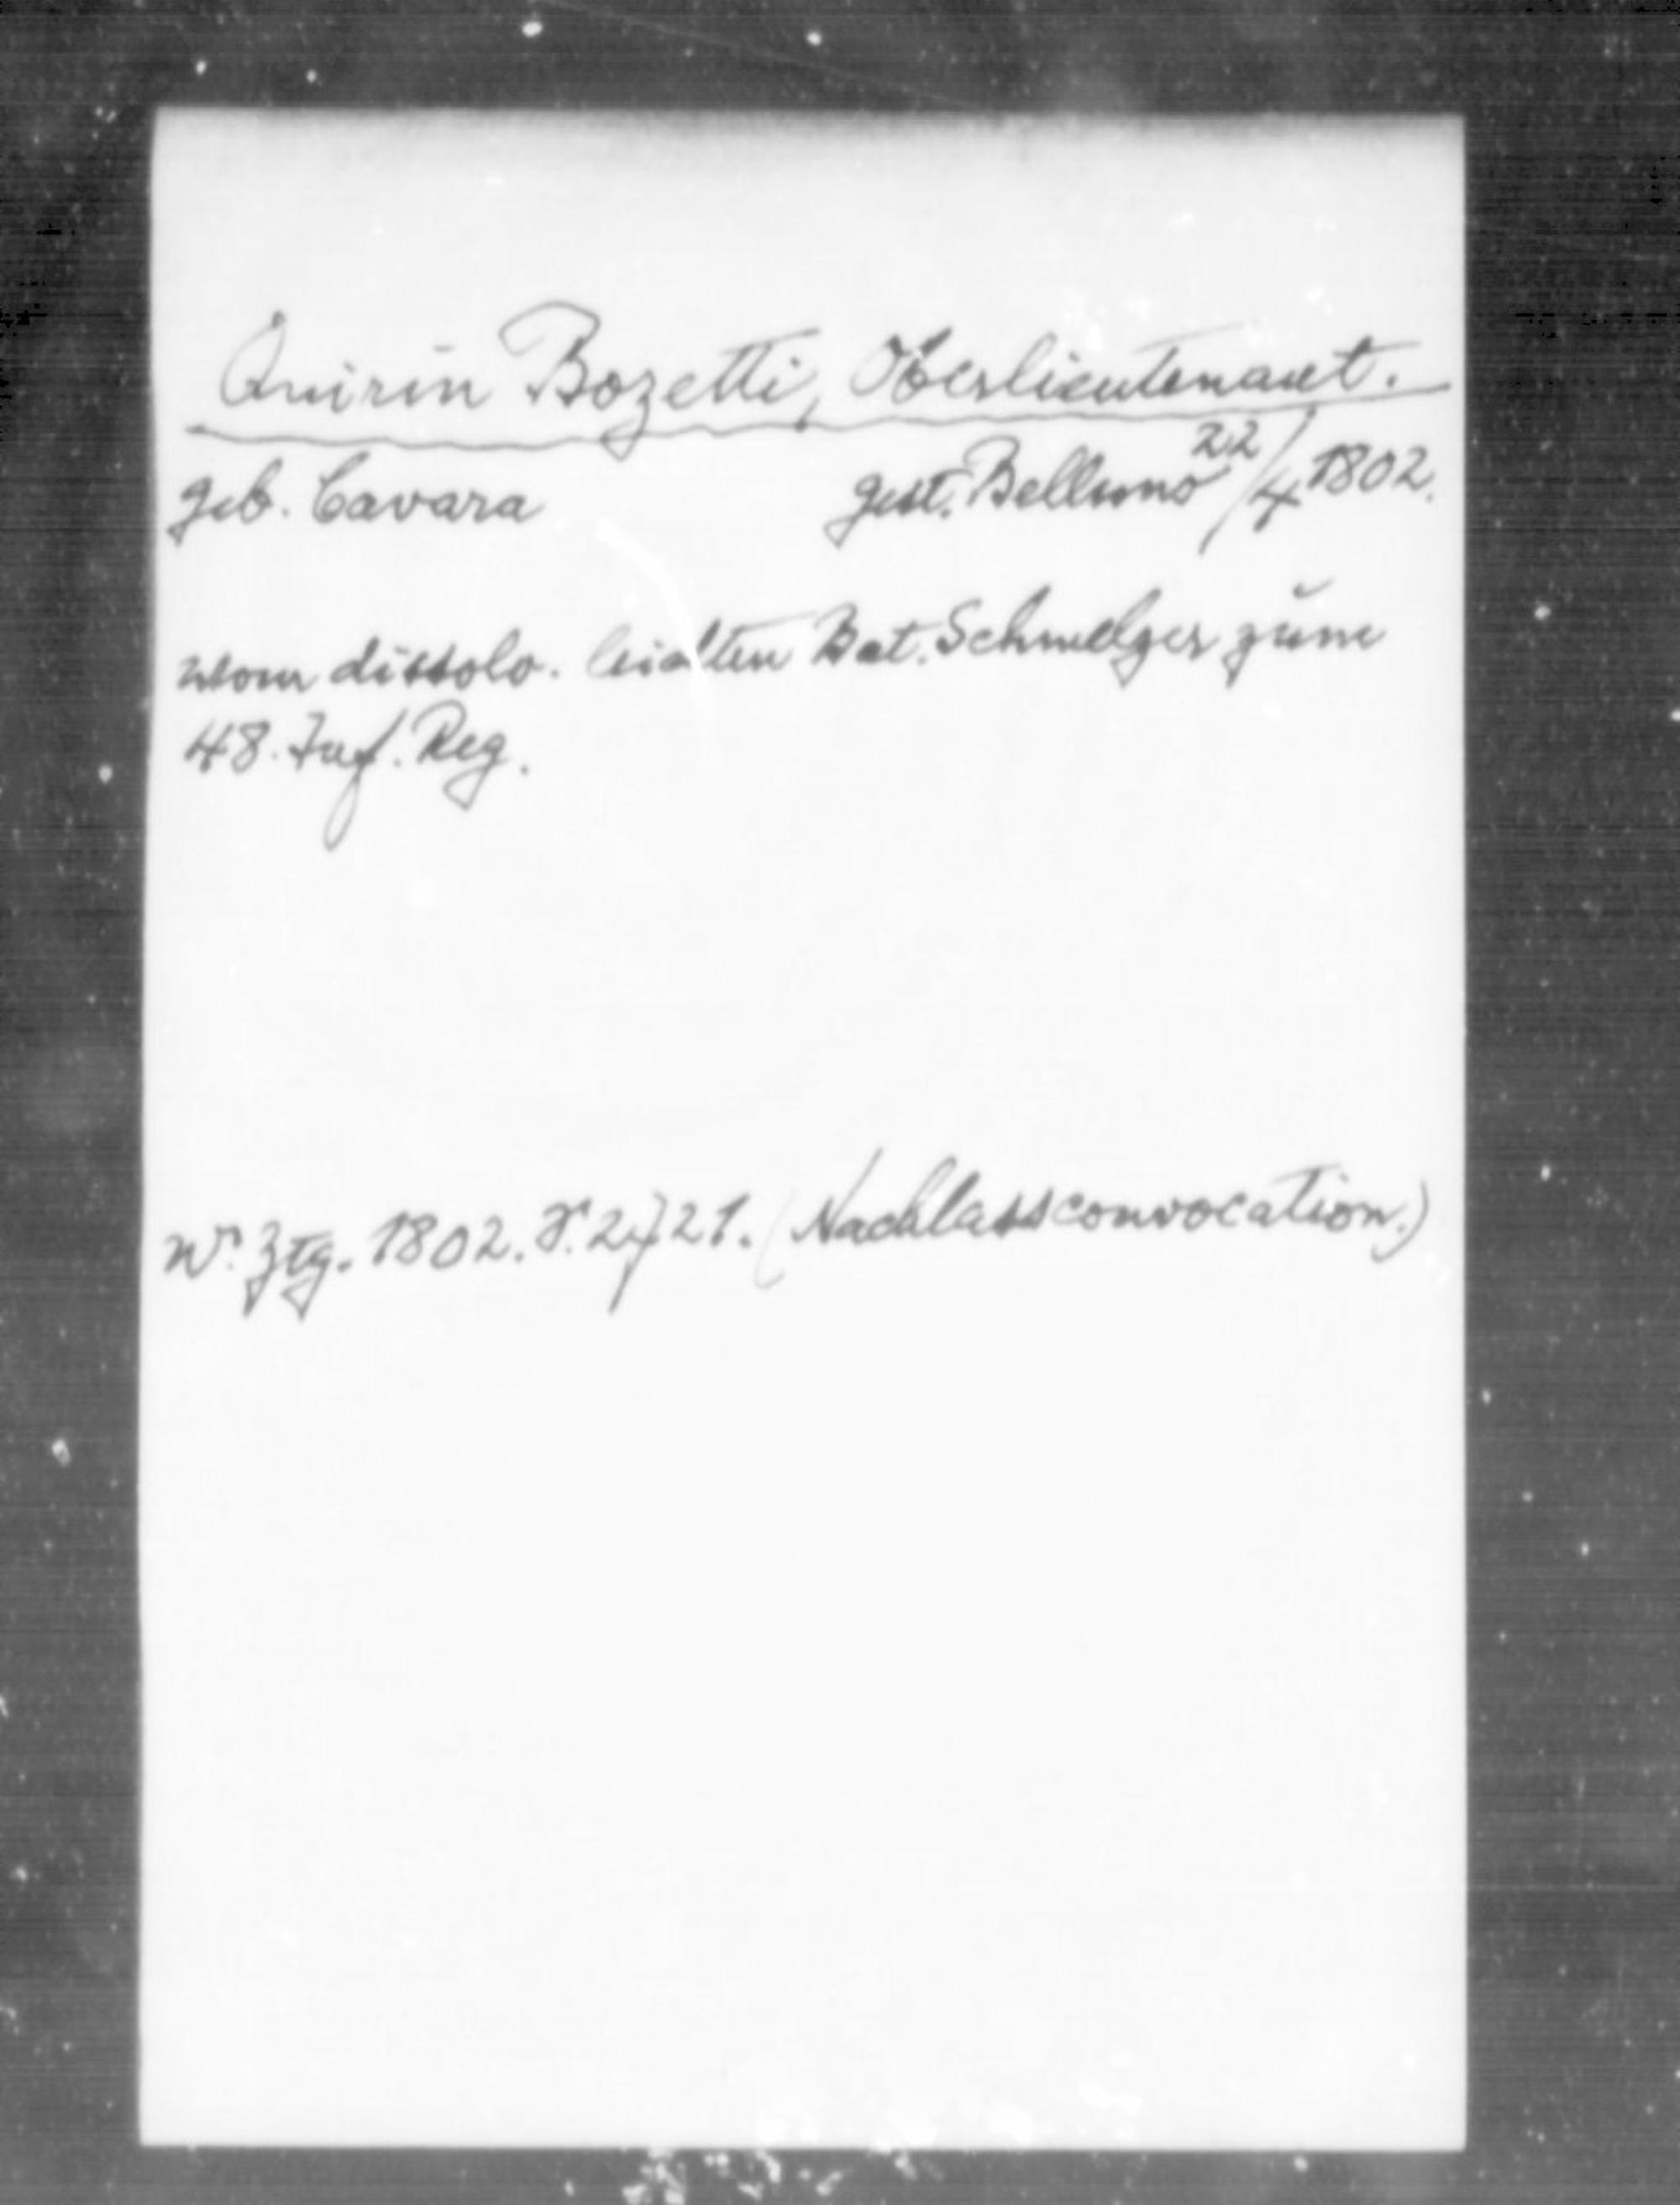 Quirin Bozetti, Oberlieutenant.
geb. Cavara gest. Belluno 22/4 1802.
vom dissolv. leichten Bat. Schmelzer zum
48. Inf. Reg.
Wr. Ztg. 1802. S. 2721. (Nachlassconvocation.)